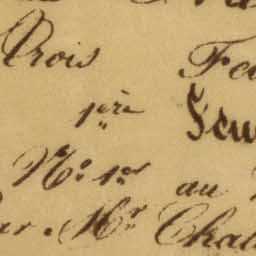 Trois Fe
1ère Seu
No. 1er au
Par Mr Chal